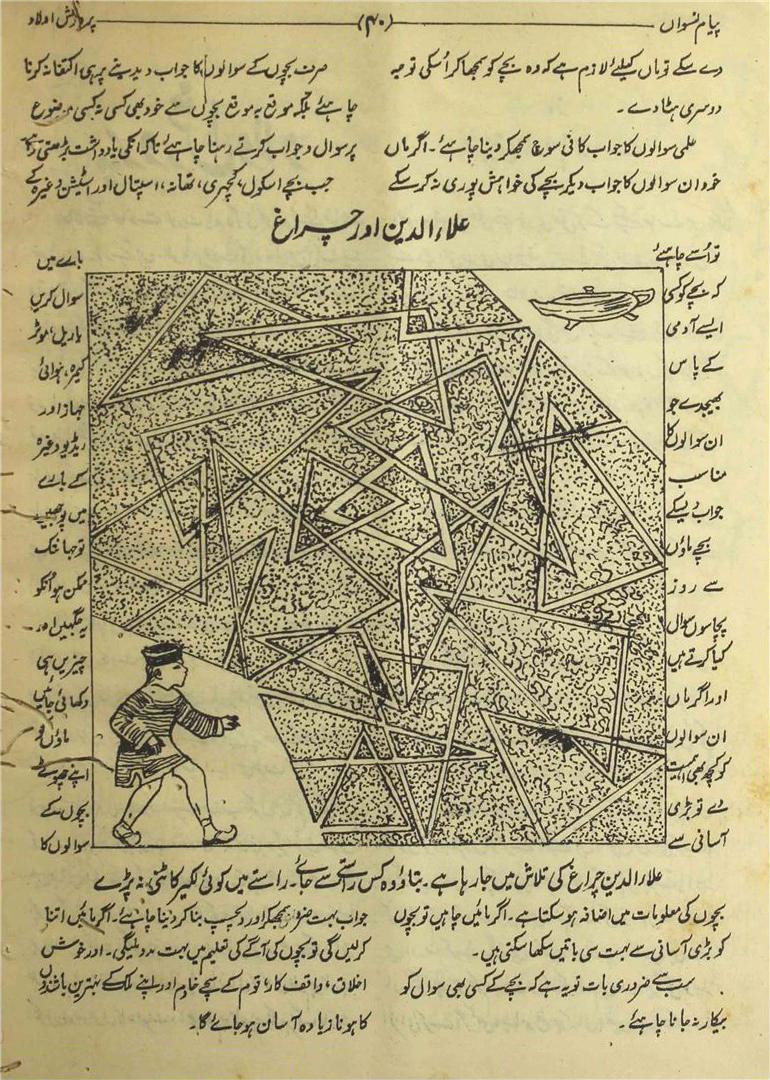 پیام نسواں (۴۰) پرورش اولاد
دے سکے تو ماں کیلئے لازم ہے کہ وہ بچے کو سمجھا کر اُسکی توجہ
دوسری ہٹا دے ۔
علمی سوالوں کا جواب کافی سوچ سمجھکر دینا چاہئے ۔ اگر ماں
خود ان سوالوں کا جواب دیکر بچے کی خواہش پوری نہ کر سکے
تو اُسے چاہئے
کہ بچے کو کسی
ایسے آدمی
کے پاس
بھیجدے جو
ان سوالوں کا
مناسب
جواب دیسکے
بچے ماؤں
سے روز
پچاسوں سوال
کیا کرتے ہیں
اور اگر ماں
ان سوالوں
کو کچھ بھی اہمیت
دے تو بڑی
آسانی سے
بچوں کی معلومات میں اضافہ ہو سکتا ہے ۔ اگر مائیں چاہیں تو بچوں
کو بڑی آسانی سے بہت سی باتیں سکھا سکتی ہیں ۔
سب سے ضروری بات تو یہ ہے کہ بچے کے کسی بھی سوال کو
بیکار نہ جانا چاہئے ۔
صرف بچوں کے سوالوں کا جواب دیدینے پر ہی اکتفا نہ کرنا
چاہئے بلکہ موقع بہ موقع بچوں سے خود بھی کسی نہ کسی موضوع
پر سوال و جواب کرتے رہنا چاہئے تاکہ انکی یادداشت بڑھتی رہے
جب بچے اسکول، کچہری، تھانہ، اسپتال اور اسٹیشن وغیرہ کے
بارے میں
سوال کریں
یا ریل، موٹر
کیمرہ، ہوائی
جہاز اور
ریڈیو وغیرہ
کے بارے
میں پوچھیں
تو جہانتک
ممکن ہو اُنکو
یہ جگہیں اور
چیزیں ہی
دکھائی جائیں
ماؤں کو
اپنے چھوٹے
بچوں کے
سوالوں کا
جواب بہت سمجھکر اور دلچسپ بنا کر دینا چاہئے ۔ اگر مائیں اتنا
کرلیں گی تو بچوں کی آگے کی تعلیم میں بہت مدد ملیگی ۔ اور خوش
اخلاق، واقف کار، قوم کے سچے خادم اور اپنے ملک کے بہترین باشندوں
کا ہونا زیادہ آسان ہو جائے گا ۔
علاءالدین اور چراغ
علاءالدین چراغ کی تلاش میں جا رہا ہے ۔ بتاؤ وہ کس راستے سے جائے ۔ راستے میں کوئی لکیر کاٹنی نہ پڑے